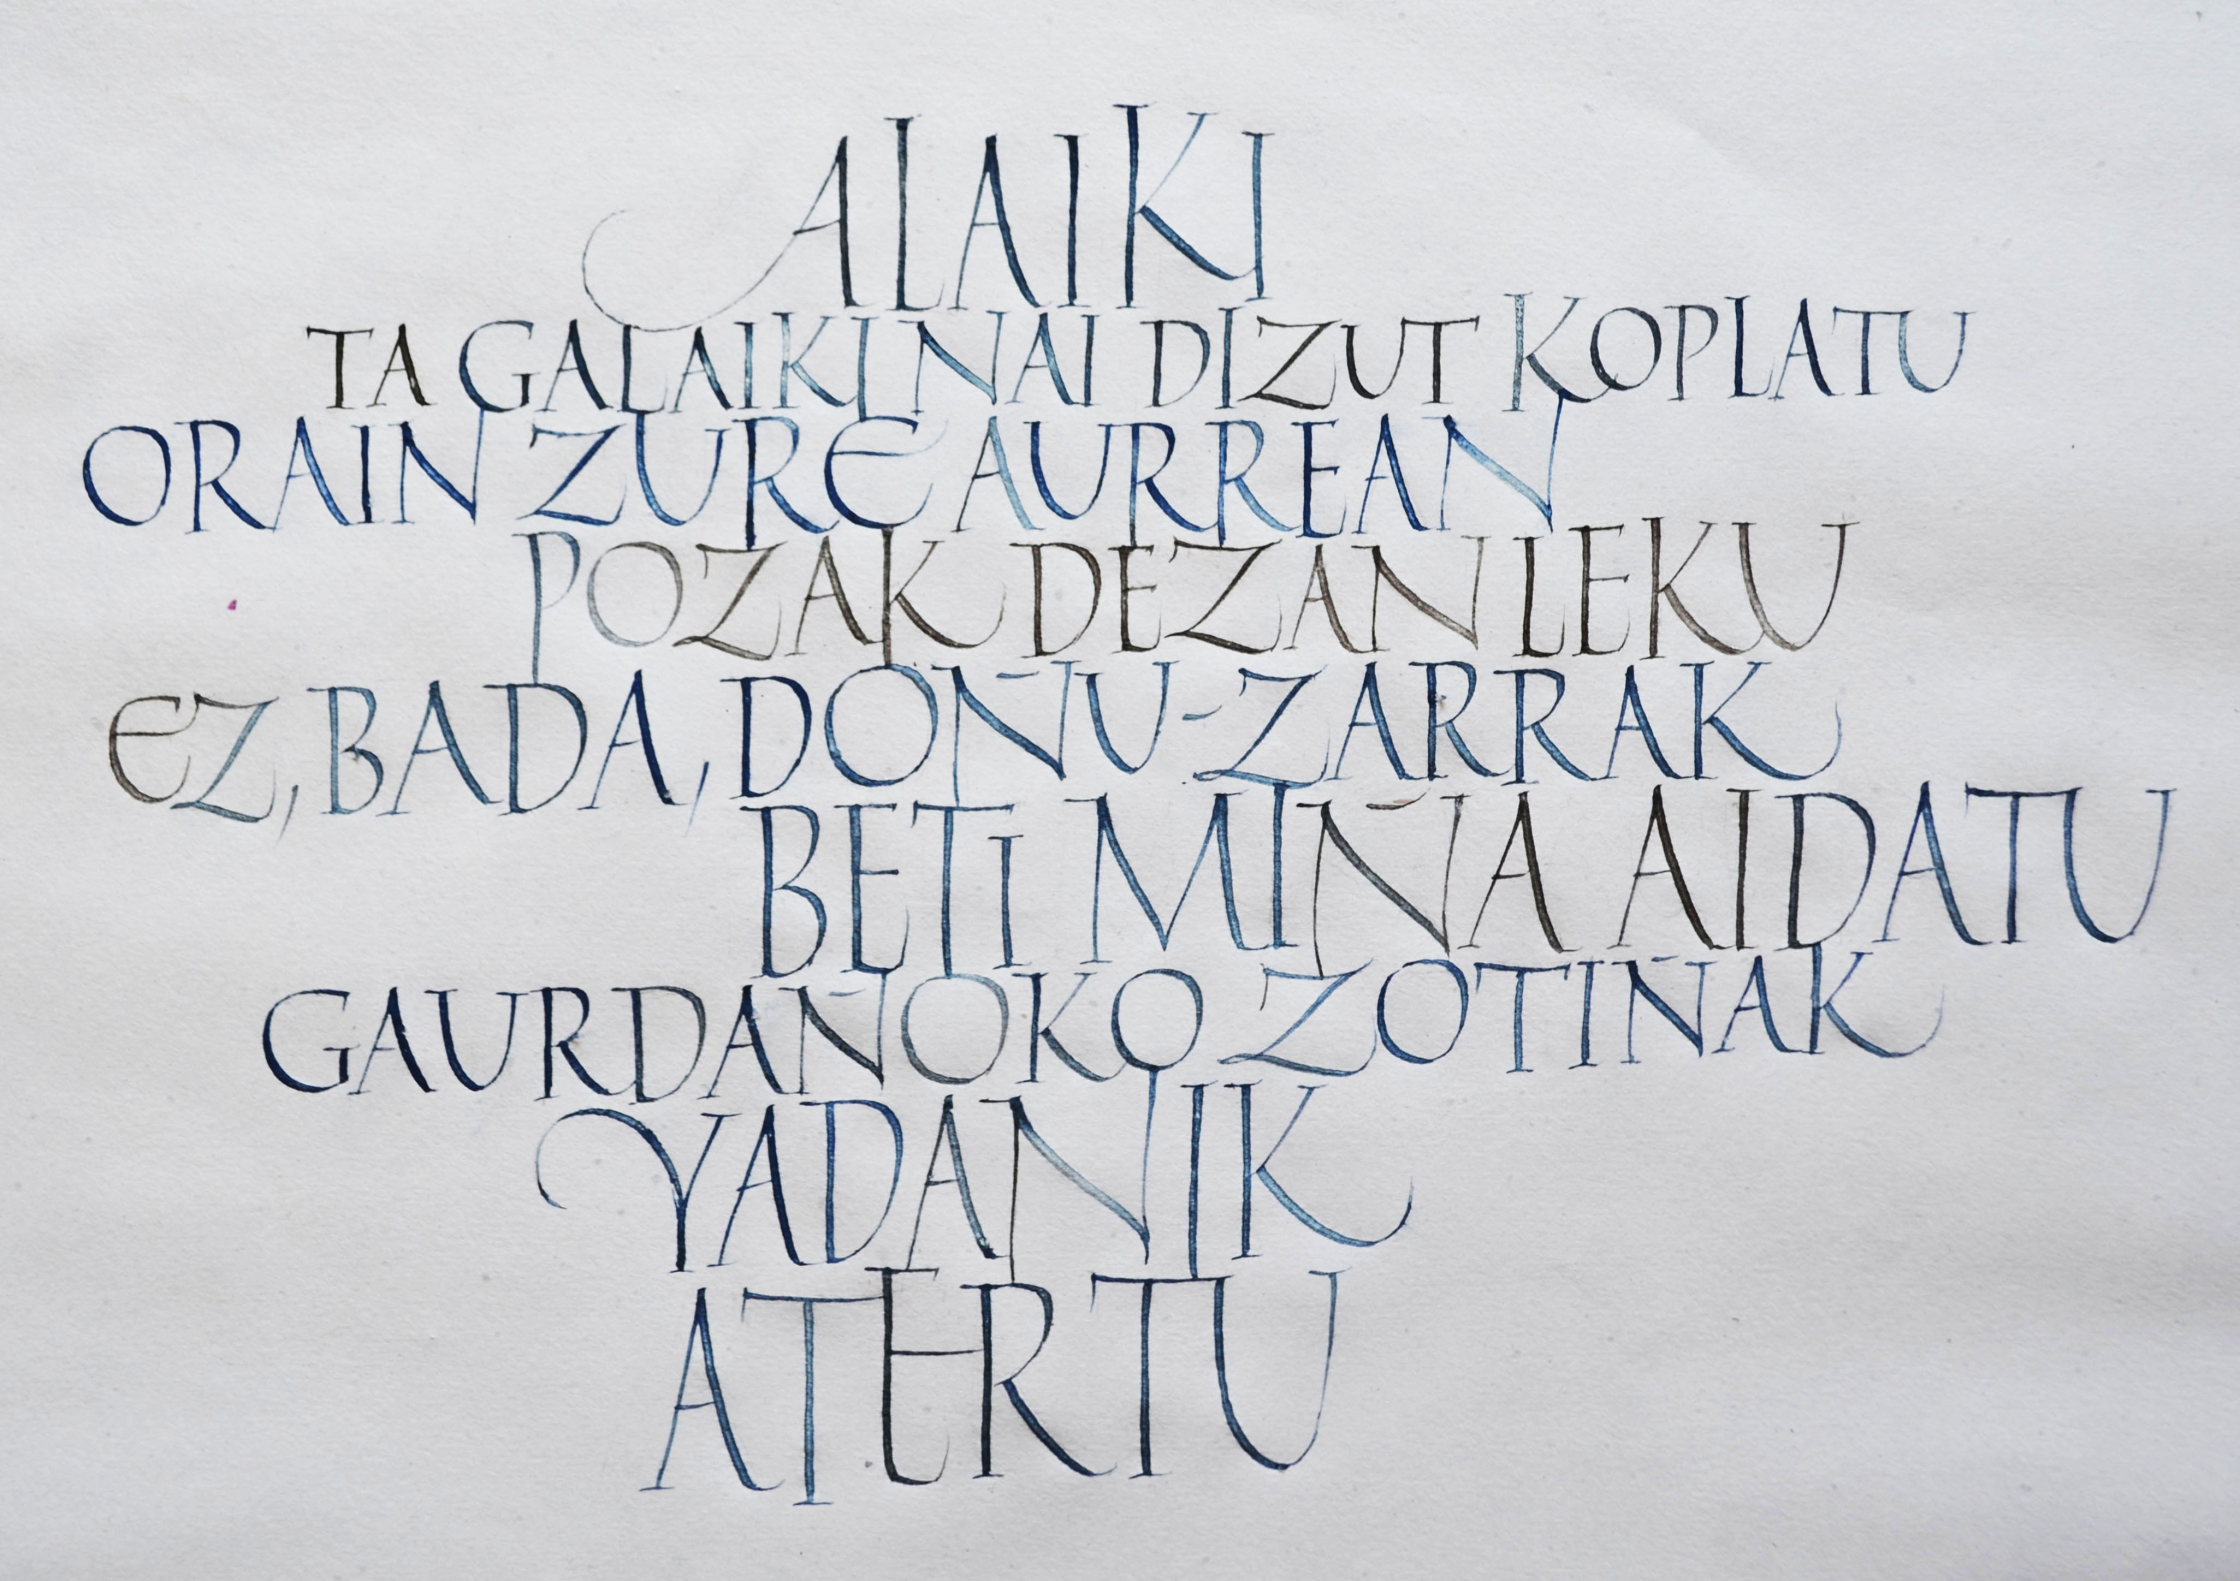 ALAIKI
TA GALAIKI NAI DIZUT KOPLATU
ORAIN ZURE AURREAN
POZAK DEZAN LEKU
EZ, BADA, DOÑU-ZARRAK
BETI MIÑA AIDATU
GAURDAÑOKO ZOTIÑAK
YADANIK
ATERTU